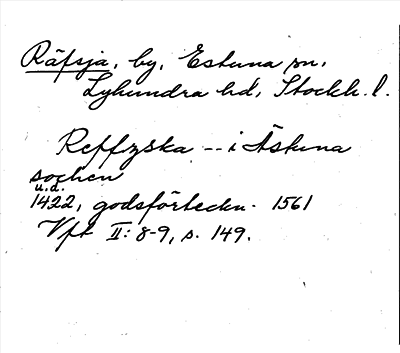 Räfsja, by, Estuna sn,
Lyhundra hd, Stockh. l.
Reffzska -- i Åstuna
sochen
u.d.
1422, godsförteckn. 1561
Vfk II: 8-9, s. 149.